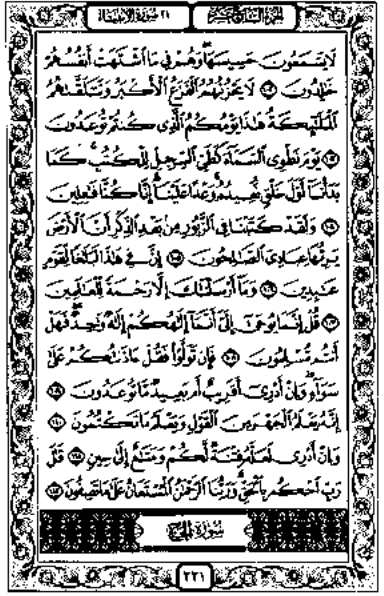 الجزء السابع عشر ٢١ سورة الأنبياء
لَا يَسْمَعُونَ حَسِيسَهَا وَهُمْ فِي مَا اشْتَهَتْ أَنفُسُهُمْ
خَالِدُونَ ١٠٢ لَا يَحْزُنُهُمُ الْفَزَعُ الْأَكْبَرُ وَتَتَلَقَّاهُمُ
الْمَلَائِكَةُ هَٰذَا يَوْمُكُمُ الَّذِي كُنتُمْ تُوعَدُونَ
١٠٣ يَوْمَ نَطْوِي السَّمَاءَ كَطَيِّ السِّجِلِّ لِلْكُتُبِ كَمَا
بَدَأْنَا أَوَّلَ خَلْقٍ نُّعِيدُهُ وَعْدًا عَلَيْنَا إِنَّا كُنَّا فَاعِلِينَ
١٠٤ وَلَقَدْ كَتَبْنَا فِي الزَّبُورِ مِن بَعْدِ الذِّكْرِ أَنَّ الْأَرْضَ
يَرِثُهَا عِبَادِيَ الصَّالِحُونَ ١٠٥ إِنَّ فِي هَٰذَا لَبَلَاغًا لِّقَوْمٍ
عَابِدِينَ ١٠٦ وَمَا أَرْسَلْنَاكَ إِلَّا رَحْمَةً لِّلْعَالَمِينَ
١٠٧ قُلْ إِنَّمَا يُوحَىٰ إِلَيَّ أَنَّمَا إِلَٰهُكُمْ إِلَٰهٌ وَاحِدٌ فَهَلْ
أَنتُم مُّسْلِمُونَ ١٠٨ فَإِن تَوَلَّوْا فَقُلْ آذَنتُكُمْ عَلَىٰ
سَوَاءٍ وَإِنْ أَدْرِي أَقَرِيبٌ أَم بَعِيدٌ مَّا تُوعَدُونَ ١٠٩
إِنَّهُ يَعْلَمُ الْجَهْرَ مِنَ الْقَوْلِ وَيَعْلَمُ مَا تَكْتُمُونَ ١١٠
وَإِنْ أَدْرِي لَعَلَّهُ فِتْنَةٌ لَّكُمْ وَمَتَاعٌ إِلَىٰ حِينٍ ١١١ قَالَ
رَبِّ احْكُم بِالْحَقِّ وَرَبُّنَا الرَّحْمَٰنُ الْمُسْتَعَانُ عَلَىٰ مَا تَصِفُونَ ١١٢
سورة الحج
٣٣١